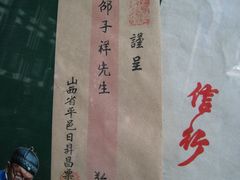 謹呈
邵子祥先生
山西省平邑日昇昌票
信行